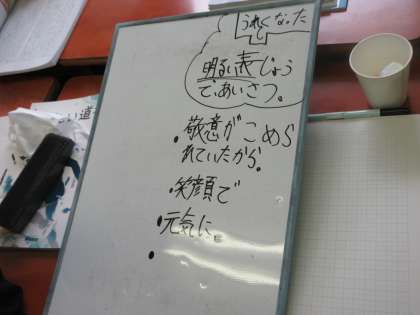 うれしくなった
明るい表じょう
で、あいさつ。
・敬意がこめら
れていたから。
・笑顔で
・元気に。
・